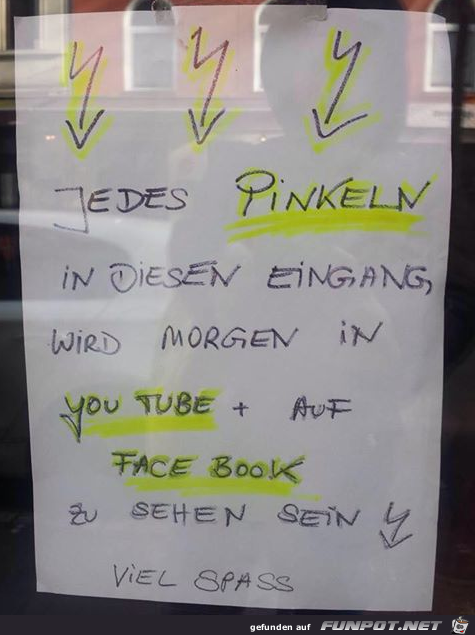 JEDES PINKELN
IN DIESEN EINGANG,
WIRD MORGEN IN
YOU TUBE + AUF
FACE BOOK
ZU SEHEN SEIN
VIEL SPASS
gefunden auf FUNPOT.NET